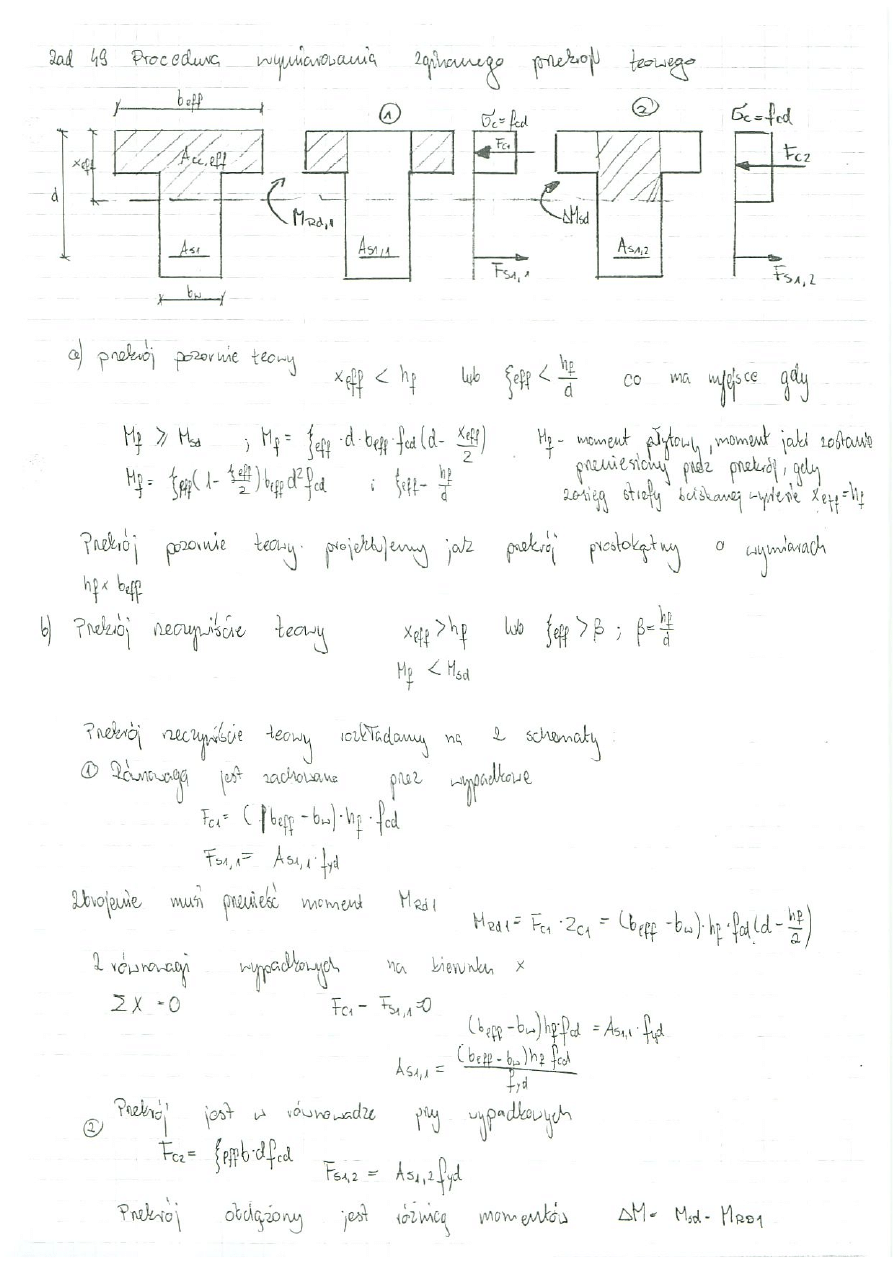 Zad 49 Procedura wymiarowania zginanego przekroju teowego
beff
1
2
σc=fcd
σc=fcd
xeff
Acc,eff
Fc1
Fc2
d
MRd,1
ΔMsd
As1
As1,1
As1,2
Fs1,1
Fs1,2
bw
a) przekrój pozornie teowy
xeff < hf lub ξeff < hf/d co ma miejsce gdy
Mf ≥ Msd ; Mf = ξeff·d·beff·fcd(d- xeff/2) Mf - moment płytowy, moment jaki zostanie
przeniesiony przez przekrój, gdy
Mf= ξeff(1- ξeff/2)beff d²fcd ; ξeff- hf/d
zasięg strefy ściskanej wyniesie xeff=hf
Przekrój pozornie teowy projektujemy jak przekrój prostokątny o wymiarach
hf x beff
b) Przekrój rzeczywiście teowy xeff>hf lub ξeff>β ; β=hf/d
Mf < Msd
Przekrój rzeczywiście teowy rozkładamy na 2 schematy
① Równowaga jest zachowana przez wypadkowe
Fc1= (beff-bw)·hf·fcd
Fs1,1= As1,1·fyd
Zbrojenie musi przenieść moment MRd1
MRd1= Fc1·zc1 = (beff-bw)·hf·fcd(d-hf/2)
Z równowagi wypadkowych na kierunku x
ΣX=0 Fc1- Fs1,1=0
(beff-bw)hf·fcd = As1,1·fyd
As1,1= (beff-bw)hf fcd/fyd
② Przekrój jest w równowadze przy wypadkowych
Fc2= ξeffb·dfcd
Fs1,2 = As1,2fyd
Przekrój obciążony jest różnicą momentów ΔM= Msd-MRD1